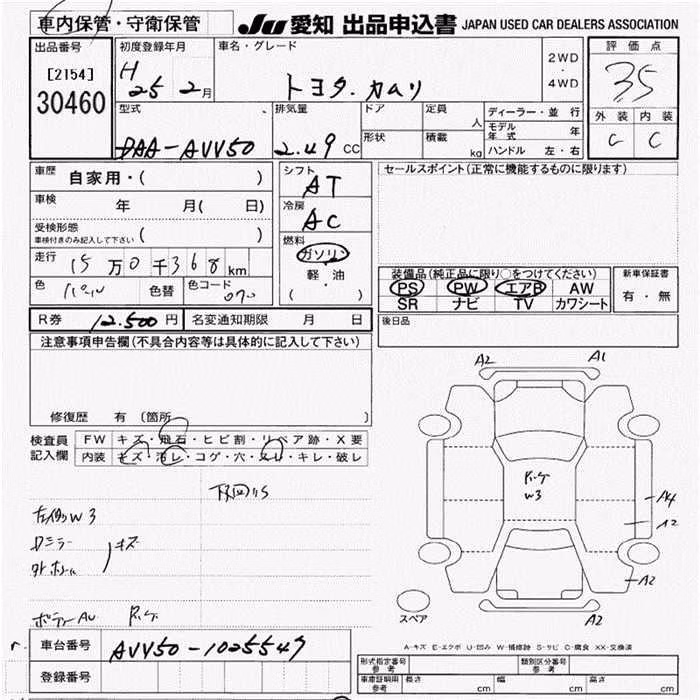 車内保管・守衛保管 JU 愛知 出品申込書 JAPAN USED CAR DEALERS ASSOCIATION
出品番号 初度登録年月 車名・グレード 2WD・4WD 評価点
[2154] H 25 2月 トヨタ.カムリ 35
30460 型式 排気量 ドア 定員 人 ディーラー・並行 外装 内装
モデル年式 年
DAA-AVV50 2.49 CC 形状 積載 kg ハンドル 左・右 C C
車歴 自家用・( ) シフト AT セールスポイント(正常に機能するものに限ります)
車検 年 月( 日) 冷房 AC
受検形態 ( )
車検付きのみ記入して下さい
燃料 ガソリン
走行 15万0千368km 軽・油 装備品(純正品に限り○をつけてください) 新車保証書
色 パール 色替 色コード 070 ( ) PS PW エアB AW 有・無
SR ナビ TV カワシート
R券 12.500円 名変通知期限 月 日 後日品
注意事項申告欄(不具合内容等は具体的に記入して下さい)
A2 A1
修復歴 有 〔箇所 〕
検査員 FW キズ・飛石・ヒビ割・リペア跡・X要
記入欄 内装 キズ・汚レ・コゲ・穴・スレ・キレ・破レ
下回りS
W3
左側W3 A4
Dミラー キズ A2
A2
スペア A2
A-キズ E-エクボ U-凹み W-補修跡 S-サビ C-腐食 XX-交換済
車台番号 AVV50-1025547
登録番号
形式指定番号 参考 類別区分番号 参考
車庫証明用 参考 長さ cm 幅 cm 高さ cm